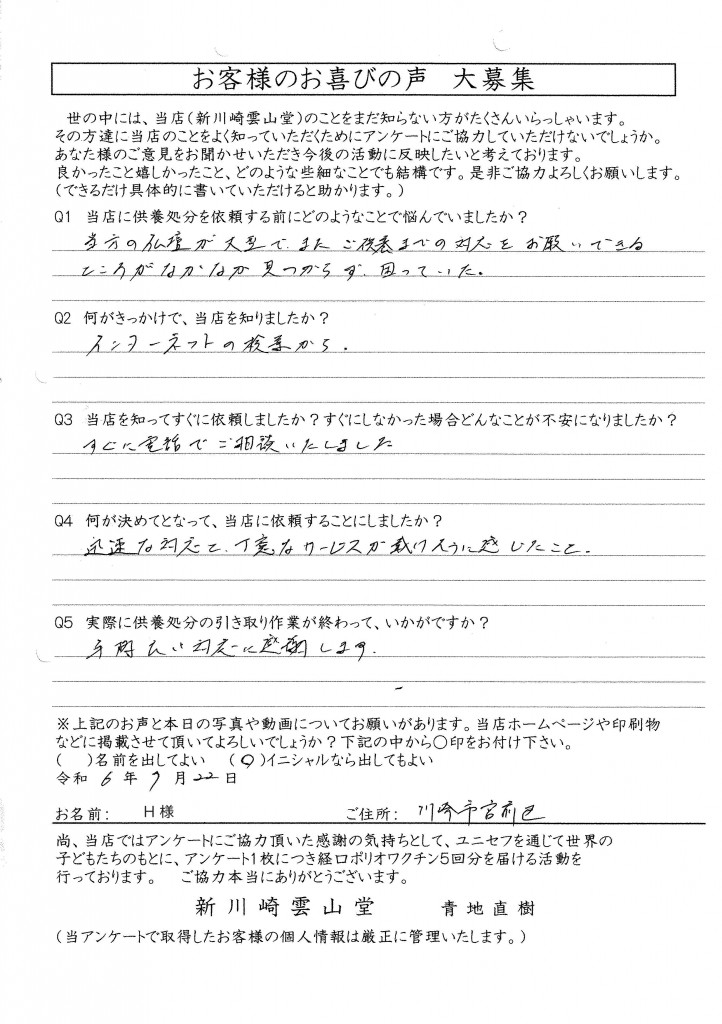 お客様のお喜びの声　大募集
世の中には、当店(新川崎雲山堂)のことをまだ知らない方がたくさんいらっしゃいます。
その方達に当店のことをよく知っていただくためにアンケートにご協力していただけないでしょうか。
あなた様のご意見をお聞かせいただき今後の活動に反映したいと考えております。
良かったこと嬉しかったこと、どのような些細なことでも結構です。是非ご協力よろしくお願いします。
(できるだけ具体的に書いていただけると助かります。)
Q1　当店に供養処分を依頼する前にどのようなことで悩んでいましたか？
当方の仏壇が大型で、また ご供養までの対応をお願いできる
ところがなかなか見つからず、困っていた。
Q2　何がきっかけで、当店を知りましたか？
インターネットの検索から.
Q3　当店を知ってすぐに依頼しましたか？すぐにしなかった場合どんなことが不安になりましたか？
すぐに電話でご相談いたしました
Q4　何が決めてとなって、当店に依頼することにしましたか？
迅速な対応と、丁寧なサービスが戴けそうに感じたこと.
Q5　実際に供養処分の引き取り作業が終わって、いかがですか？
手際良い対応に感謝します.
※上記のお声と本日の写真や動画についてお願いがあります。当店ホームページや印刷物
などに掲載させて頂いてよろしいでしょうか？下記の中から○印をお付け下さい。
(　)名前を出してよい　(○)イニシャルなら出してもよい
令和 6 年 7 月 22 日
お名前：　H様　ご住所：　川崎市宮前区
尚、当店ではアンケートにご協力頂いた感謝の気持ちとして、ユニセフを通じて世界の
子どもたちのもとに、アンケート1枚につき経口ポリオワクチン5回分を届ける活動を
行っております。　ご協力本当にありがとうございます。
新川崎雲山堂　青地直樹
(当アンケートで取得したお客様の個人情報は厳正に管理いたします。)